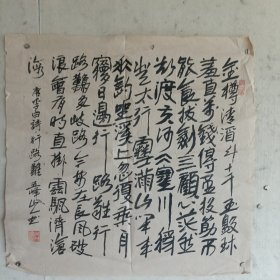 金樽清酒斗十千玉盤珍
羞直萬錢停盃投箸不
能食拔劍四顧心茫然
欲渡黃河冰塞川將
登太行雪滿山閑來
垂釣坐溪上忽復乘舟
夢日邊行路難行
路難多歧路今安在長風破
浪會有時直掛雲帆濟滄
海 唐李白詩行路難